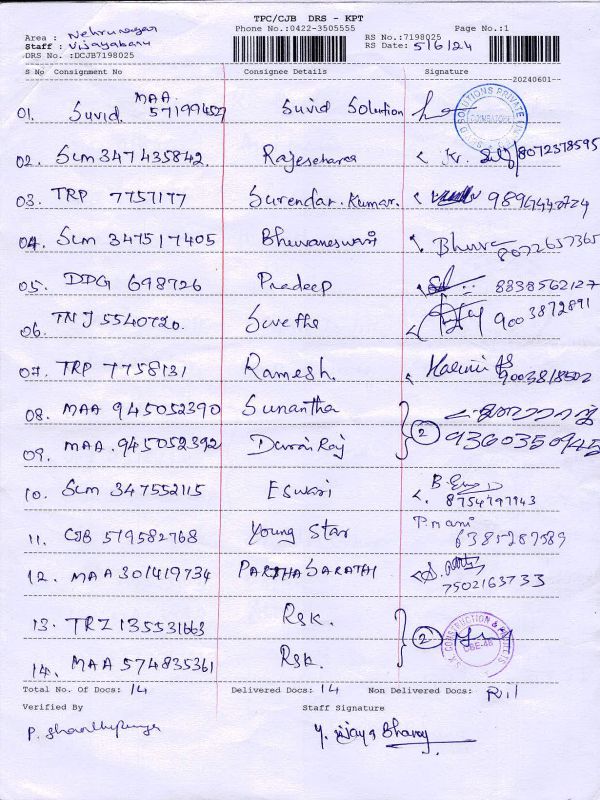 TPC/CJB DRS - KPT
Phone No.:0422-3505555 Page No.:1
Area : Nehrunagar RS No.:7198025
Staff : Vijayabanu RS Date: 5/6/24
DRS No. :DCJB7198025
S No Consignment No Consignee Details Signature
20240601
01. Suvid. MAA 571994527 Suvid Solution
02. SLM 347435842 8072378595
03. TRP 7757177 Surendar.Kumar.
04. SLM 347517405 Bhuvaneswari Bhuva 8072657365
05. DDG 698726 Pradeep 8838562127
06. TNJ 5540720. Swetha 9003872891
07. TRP 7758131 Ramesh. 9003818502
08. MAA 945052390 Sunantha
09. MAA.945052392 Durai Raj 2 9360350945
10. SLM 347552115 Eswari 8754797943
11. CJB 519582768 Young Star P.mani 6385287589
12. MAA301419734 PARTHASARATHI 7502163733
13. TRZ 135531663 Rsk.
14. MAA 574835361 Rsk. 2
Total No. Of Docs: 14 Delivered Docs: 14 Non Delivered Docs: Nil
Verified By Staff Signature